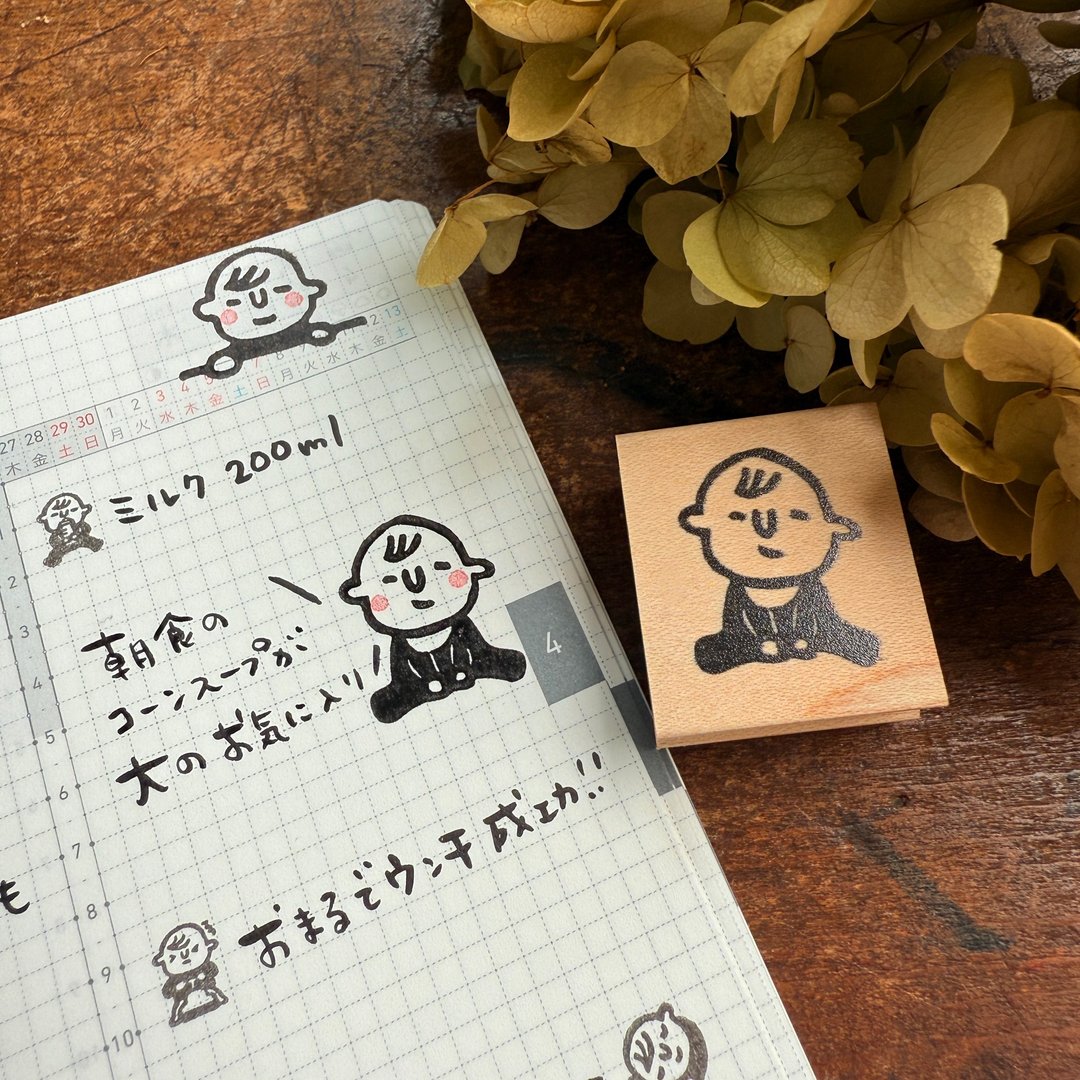 27 28 29 30 1 2 3 4 5 7 8 12 13
木 金 土 日 月 火 水 木 金 土 日 月 火 水 木 金 土
ミルク 200ml
朝食の
コーンスープが
大のお気に入り!
おまるでウンチ成功!!
も
4
2
3
4
5
6
7
8
9
10